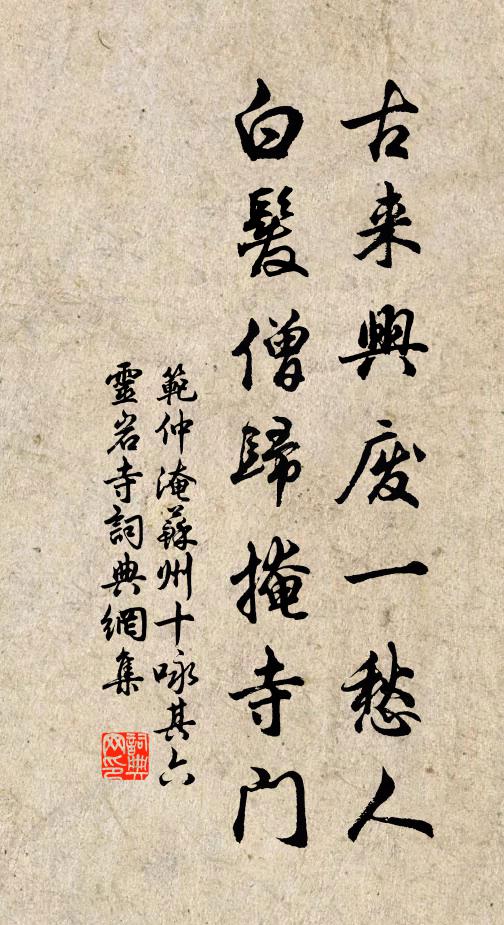 古来興廢一愁人
白髮僧歸掩寺門
範仲淹蘇州十咏其六
靈岩寺詞典網集
詞典
网印